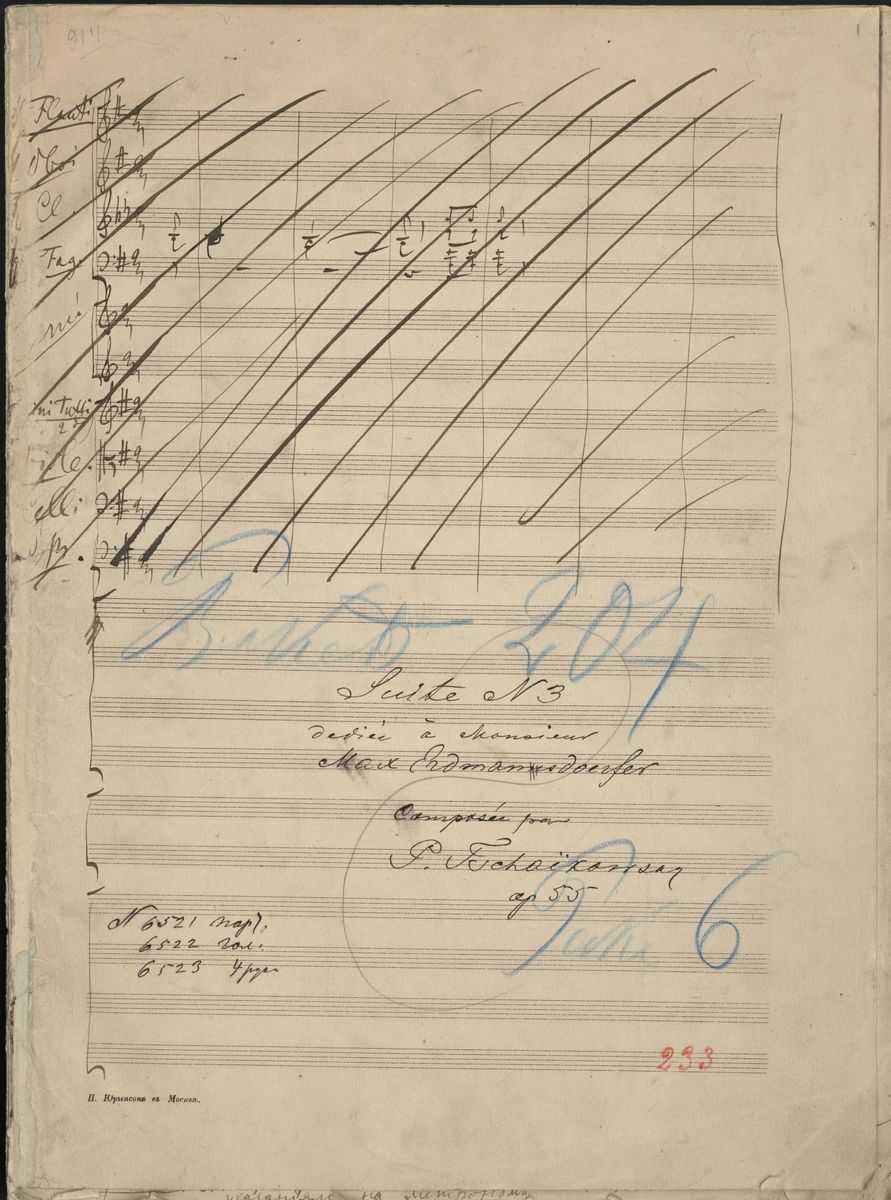 914
1
Flauti
Oboi
Cl.
Fag.
ni Tutti
elli
204
Suite N 3
dediée à Monsieur
Max Erdmannsdoerfer
Composée par
P. Tschaïkowsky
op 55
6
N 6521 парт.
6522 гол.
6523 4 руки
233
П. Юргенсонъ въ Москвѣ.
указаніям на метрономъ